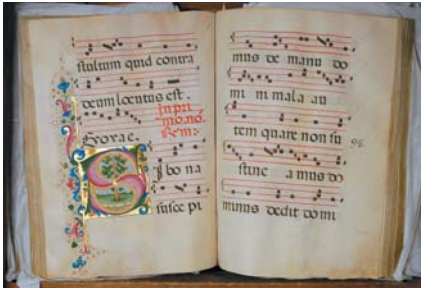 stultum quid contra
deum locutus est.
In pri
mo. nō.
Seovae.
S I bona
susce pi
mus de manu do
mi ni mala au
tem quare non su
stine amus do
minus dedit domi